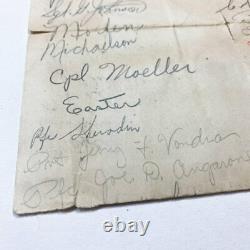 Morden
Michaelson
Cpl Moeller
Easter
Pfc
Pvt Jerry F. Vondra
Pfc Joe D. Angarone
ebay